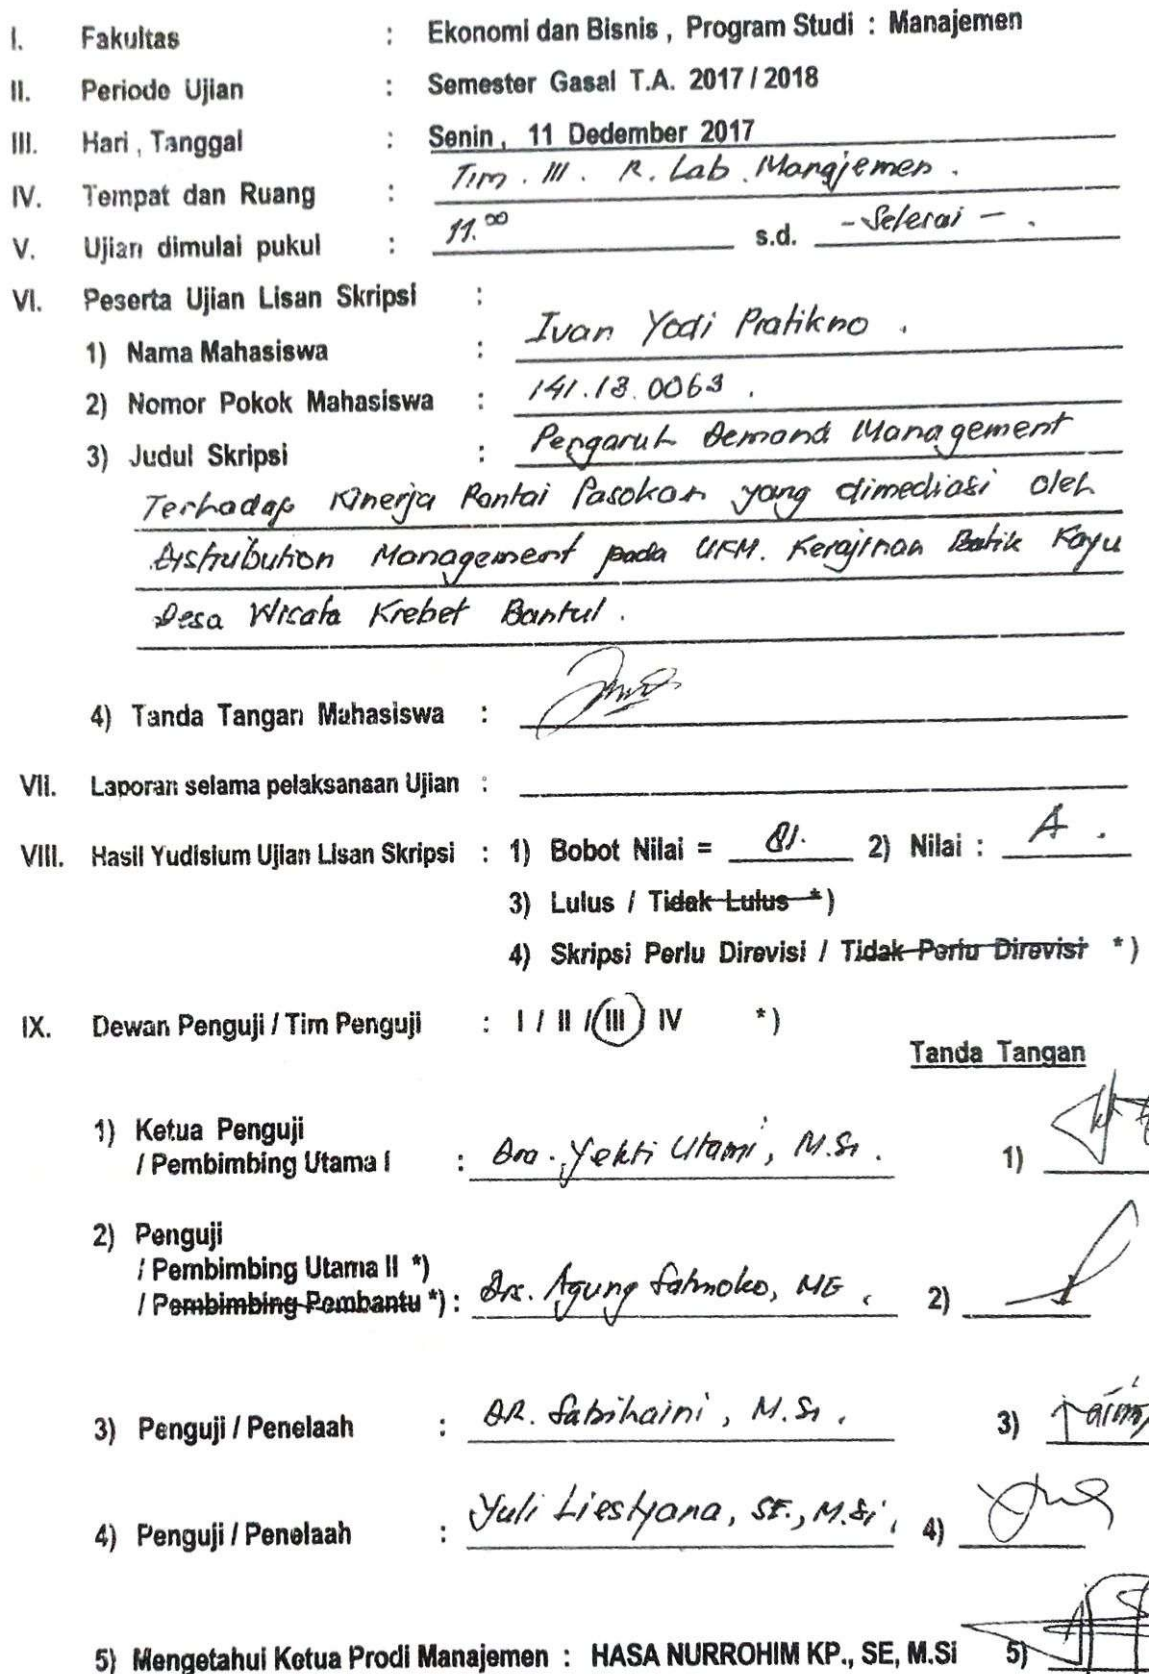 I. Fakultas : Ekonomi dan Bisnis , Program Studi : Manajemen
II. Periode Ujian : Semester Gasal T.A. 2017 / 2018
III. Hari , Tanggal : Senin , 11 Dedember 2017
IV. Tempat dan Ruang : Tim . III . R. Lab . Manajemen .
V. Ujian dimulai pukul : 11.00 s.d. - Selesai - .
VI. Peserta Ujian Lisan Skripsi :
1) Nama Mahasiswa : Ivan Yodi Pratikno .
2) Nomor Pokok Mahasiswa : 141.13.0063 .
3) Judul Skripsi : Pengaruh Demand Management
Terhadap Kinerja Rantai Pasokan yang dimediasi oleh
Distribution Management pada UKM. Kerajinan Batik Kayu
Desa Wisata Krebet Bantul .
4) Tanda Tangan Mahasiswa :
VII. Laporan selama pelaksanaan Ujian :
VIII. Hasil Yudisium Ujian Lisan Skripsi : 1) Bobot Nilai = 81. 2) Nilai : A .
3) Lulus / Tidak Lulus *)
4) Skripsi Perlu Direvisi / Tidak Perlu Direvisi *)
IX. Dewan Penguji / Tim Penguji : I / II / III / IV *)
Tanda Tangan
1) Ketua Penguji
/ Pembimbing Utama I : Dra. Yekti Utami, M.Si . 1)
2) Penguji
/ Pembimbing Utama II *)
/ Pembimbing Pembantu *) : Drs. Agung Satmoko, ME . 2)
3) Penguji / Penelaah : DR. Sabihaini , M.Si . 3)
4) Penguji / Penelaah : Yuli Liestyana, SE., M.Si , 4)
5) Mengetahui Ketua Prodi Manajemen : HASA NURROHIM KP., SE, M.Si 5)